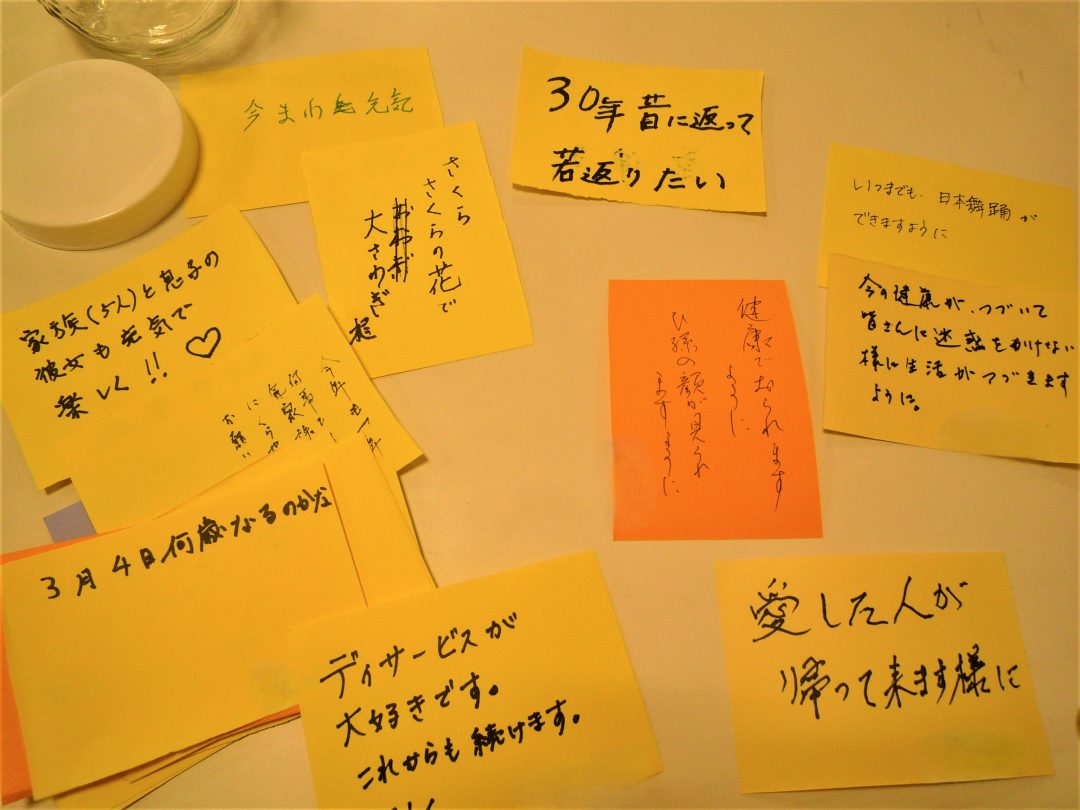 今まわ元気
30年昔に返って
若返りたい
さくら
さくらの花で
大さわぎ
いつまでも、日本舞踊が
できますように
今の健康が、つづいて
皆さんに迷惑をかけない
様に生活がつづきます
ように。
家族(5人)と息子の
彼女も元気で
楽しく!!
今年も一年
何事も
家族
お願い
健康でおられます
ように
ひ孫の顔が見れ
ますように
3月4日何歳なるのかな
ディサービスが
大好きです。
これからも続けます。
愛した人が
帰って来ます様に